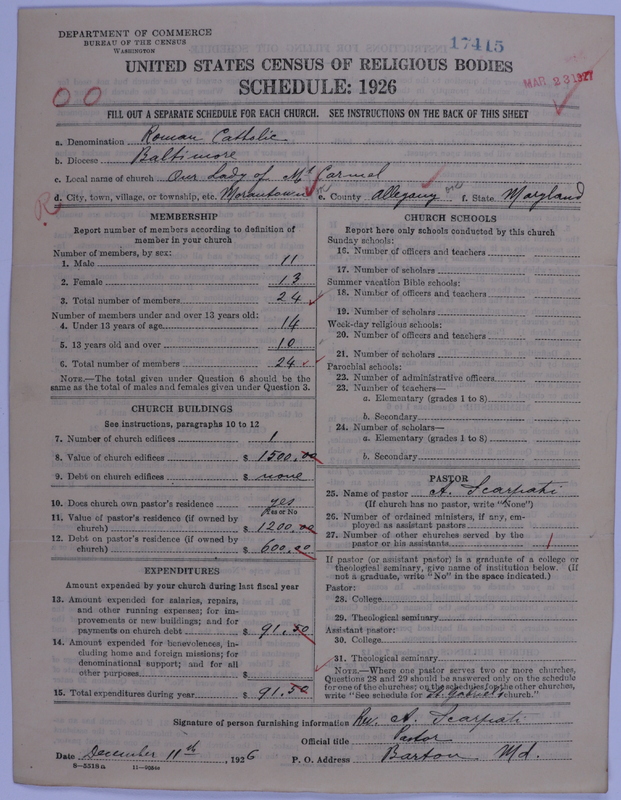 DEPARTMENT OF COMMERCE
BUREAU OF THE CENSUS
WASHINGTON
17415
MAR 23 1927
UNITED STATES CENSUS OF RELIGIOUS BODIES
SCHEDULE: 1926
FILL OUT A SEPARATE SCHEDULE FOR EACH CHURCH. SEE INSTRUCTIONS ON THE BACK OF THIS SHEET
a. Denomination Roman Catholic
b. Diocese Baltimore
c. Local name of church Our Lady of Mt Carmel
d. City, town, village, or township, etc. Morantown e. County Allegany f. State Maryland
MEMBERSHIP
Report number of members according to definition of
member in your church
Number of members, by sex:
1. Male 11
2. Female 13
3. Total number of members 24
Number of members under and over 13 years old:
4. Under 13 years of age 14
5. 13 years old and over 10
6. Total number of members 24
NOTE.—The total given under Question 6 should be the
same as the total of males and females given under Question 3.
CHURCH BUILDINGS
See instructions, paragraphs 10 to 12
7. Number of church edifices 1
8. Value of church edifices $ 1500.00
9. Debt on church edifices $ none
10. Does church own pastor's residence yes
Yes or No
11. Value of pastor's residence (if owned by
church) $ 1200.00
12. Debt on pastor's residence (if owned by
church) $ 600.00
EXPENDITURES
Amount expended by your church during last fiscal year
13. Amount expended for salaries, repairs,
and other running expenses; for im-
provements or new buildings; and for
payments on church debt $ 91.50
14. Amount expended for benevolences, in-
cluding home and foreign missions; for
denominational support; and for all
other purposes $
15. Total expenditures during year $ 91.50
CHURCH SCHOOLS
Report here only schools conducted by this church
Sunday schools:
16. Number of officers and teachers
17. Number of scholars
Summer vacation Bible schools:
18. Number of officers and teachers
19. Number of scholars
Week-day religious schools:
20. Number of officers and teachers
21. Number of scholars
Parochial schools:
22. Number of administrative officers
23. Number of teachers—
a. Elementary (grades 1 to 8)
b. Secondary
24. Number of scholars—
a. Elementary (grades 1 to 8)
b. Secondary
PASTOR
25. Name of pastor A. Scarpati
(If church has no pastor, write "None")
26. Number of ordained ministers, if any, em-
ployed as assistant pastors
27. Number of other churches served by the
pastor or his assistants 1
If pastor (or assistant pastor) is a graduate of a college or
theological seminary, give name of institution below. (If
not a graduate, write "No" in the space indicated.)
Pastor:
28. College
29. Theological seminary
Assistant pastor:
30. College
31. Theological seminary
NOTE.—Where one pastor serves two or more churches,
Questions 28 and 29 should be answered only on the schedule
for one of the churches; on the schedules for the other churches,
write "See schedule for St. Gabriel's church."
Signature of person furnishing information Rev. A. Scarpati
Official title Pastor
Date December 11th, 1926 P. O. Address Barton Md.
8-5518a